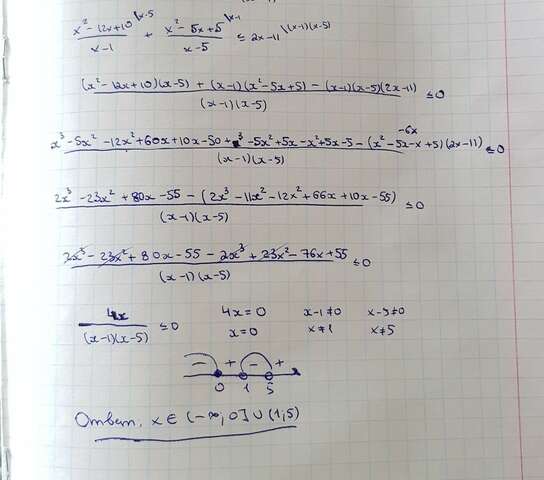 (x² - 12x + 10)/(x - 1) \x-5 + (x² - 5x + 5)/(x - 5) \x-1 ≤ 2x - 11 \(x-1)(x-5)
((x² - 12x + 10)(x - 5) + (x - 1)(x² - 5x + 5) - (x - 1)(x - 5)(2x - 11))/((x - 1)(x - 5)) ≤ 0
(x³ - 5x² - 12x² + 60x + 10x - 50 + x³ - 5x² + 5x - x² + 5x - 5 - (x² - 5x - x + 5)(2x - 11))/((x - 1)(x - 5)) ≤ 0
-6x
(2x³ - 23x² + 80x - 55 - (2x³ - 11x² - 12x² + 66x + 10x - 55))/((x - 1)(x - 5)) ≤ 0
(2x³ - 23x² + 80x - 55 - 2x³ + 23x² - 76x + 55)/((x - 1)(x - 5)) ≤ 0
4x/((x - 1)(x - 5)) ≤ 0 4x = 0 x - 1 ≠ 0 x - 5 ≠ 0
x = 0 x ≠ 1 x ≠ 5
- + - +
0 1 5 x
Ответ, x ∈ (-∞; 0] ∪ (1; 5)